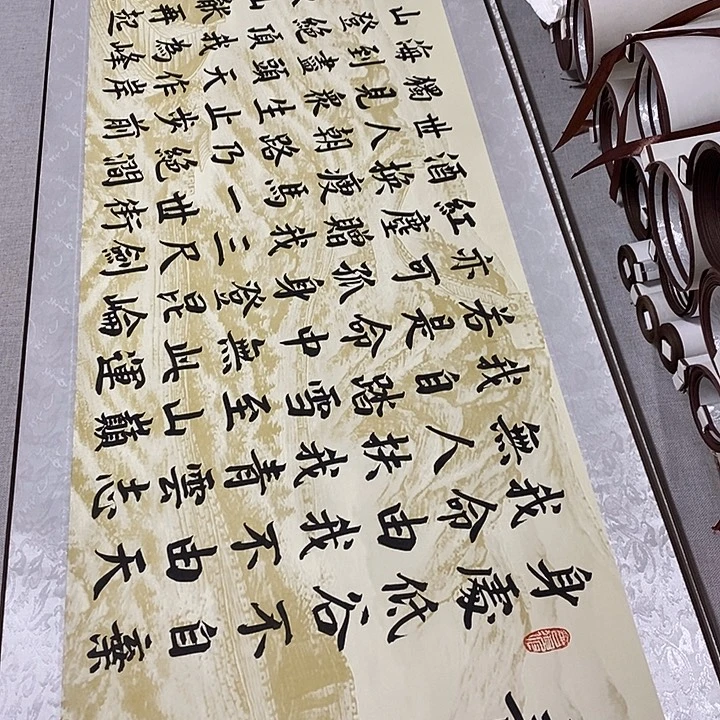 身處低谷不自棄
我命由我不由天
無人扶我青雲志
我自踏雪至山巔
若是命中無此運
亦可孤身登昆崙
紅塵贈我三尺劍
酒換瘦馬一世街
世人朝路乃絕澗
獨見眾生止步前
海到盡頭天作岸
山登絕頂我為峰
再起